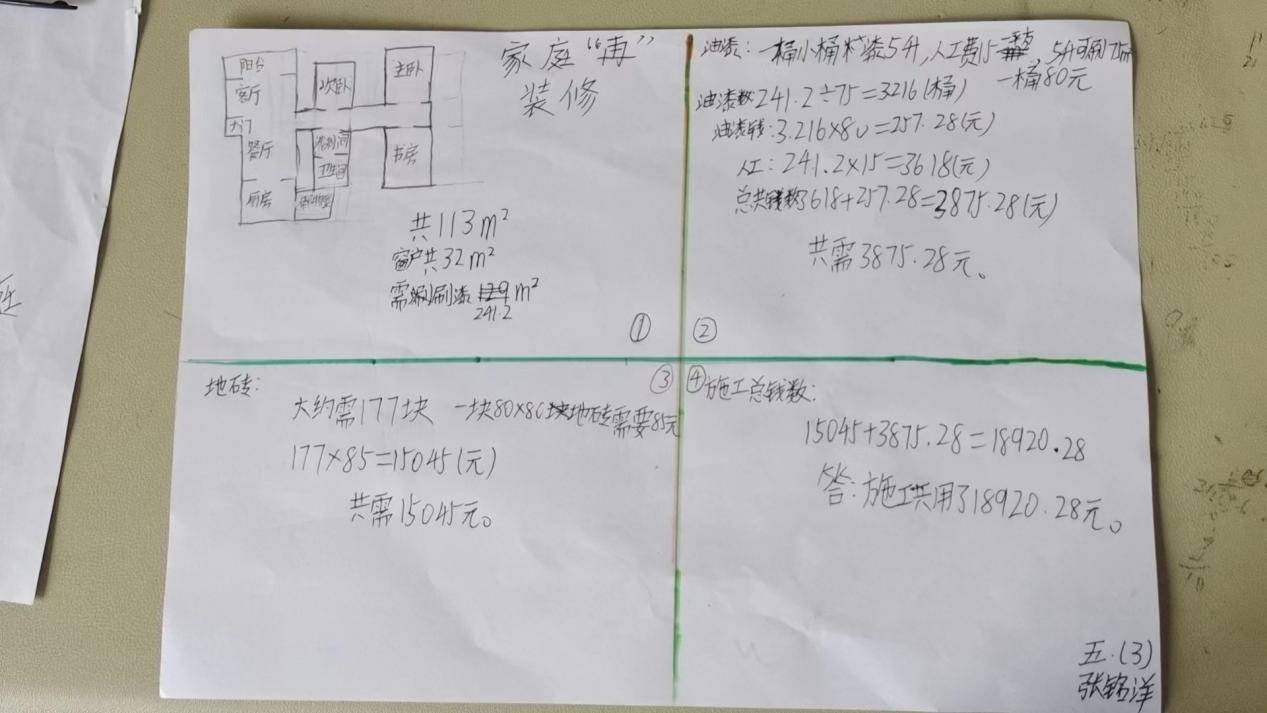 家庭“再”
装修
阳台
客厅
大门
餐厅
厨房
次卧
主卧
卫生间
书房
共113m²
窗户共32m²
需刷漆 129 m²
241.2
①
油漆：一桶小桶漆5升,人工费15 5升可刷75m²
一桶80元
油漆数241.2÷75=3216(桶)
油漆钱:3.216×80=257.28(元)
人工:241.2×15=3618(元)
总共钱数3618+257.28=3875.28(元)
共需3875.28元。
②
③
地砖:
大约需177块 一块80×80地砖需要85元
177×85=15045(元)
共需15045元。
④施工总钱数:
15045+3875.28=18920.28
答:施工共用了18920.28元。
五.(3)
张铭洋